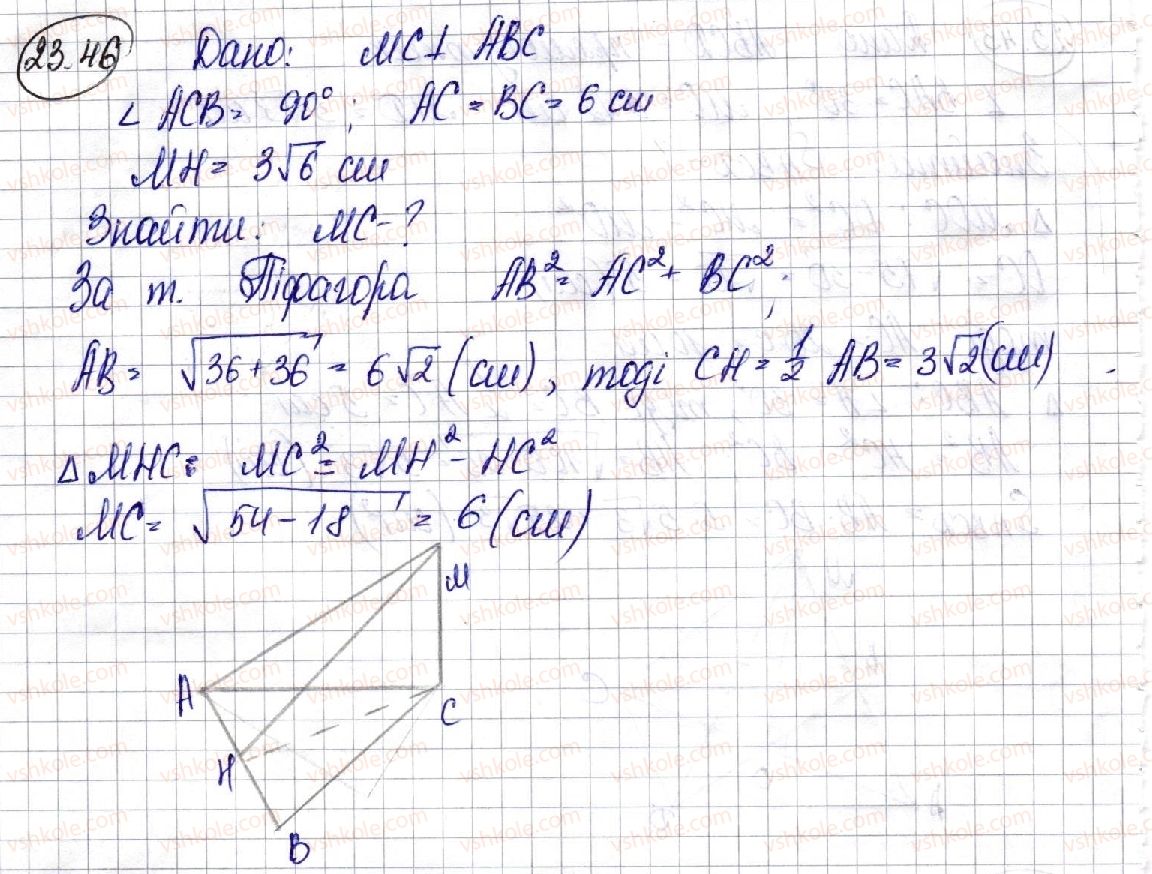 23.46 Дано: MC⊥ ABC
∠ ACB = 90°; AC = BC = 6 см
MH = 3√6 см
Знайти: MC-?
За т. Піфагора AB² = AC² + BC²;
AB = √36+36 = 6√2 (см), тоді CH = 1/2 AB = 3√2 (см).
△ MHC: MC² = MH² - HC²
MC = √54-18 = 6 (см)
M
A
C
H
B
vshkole.com